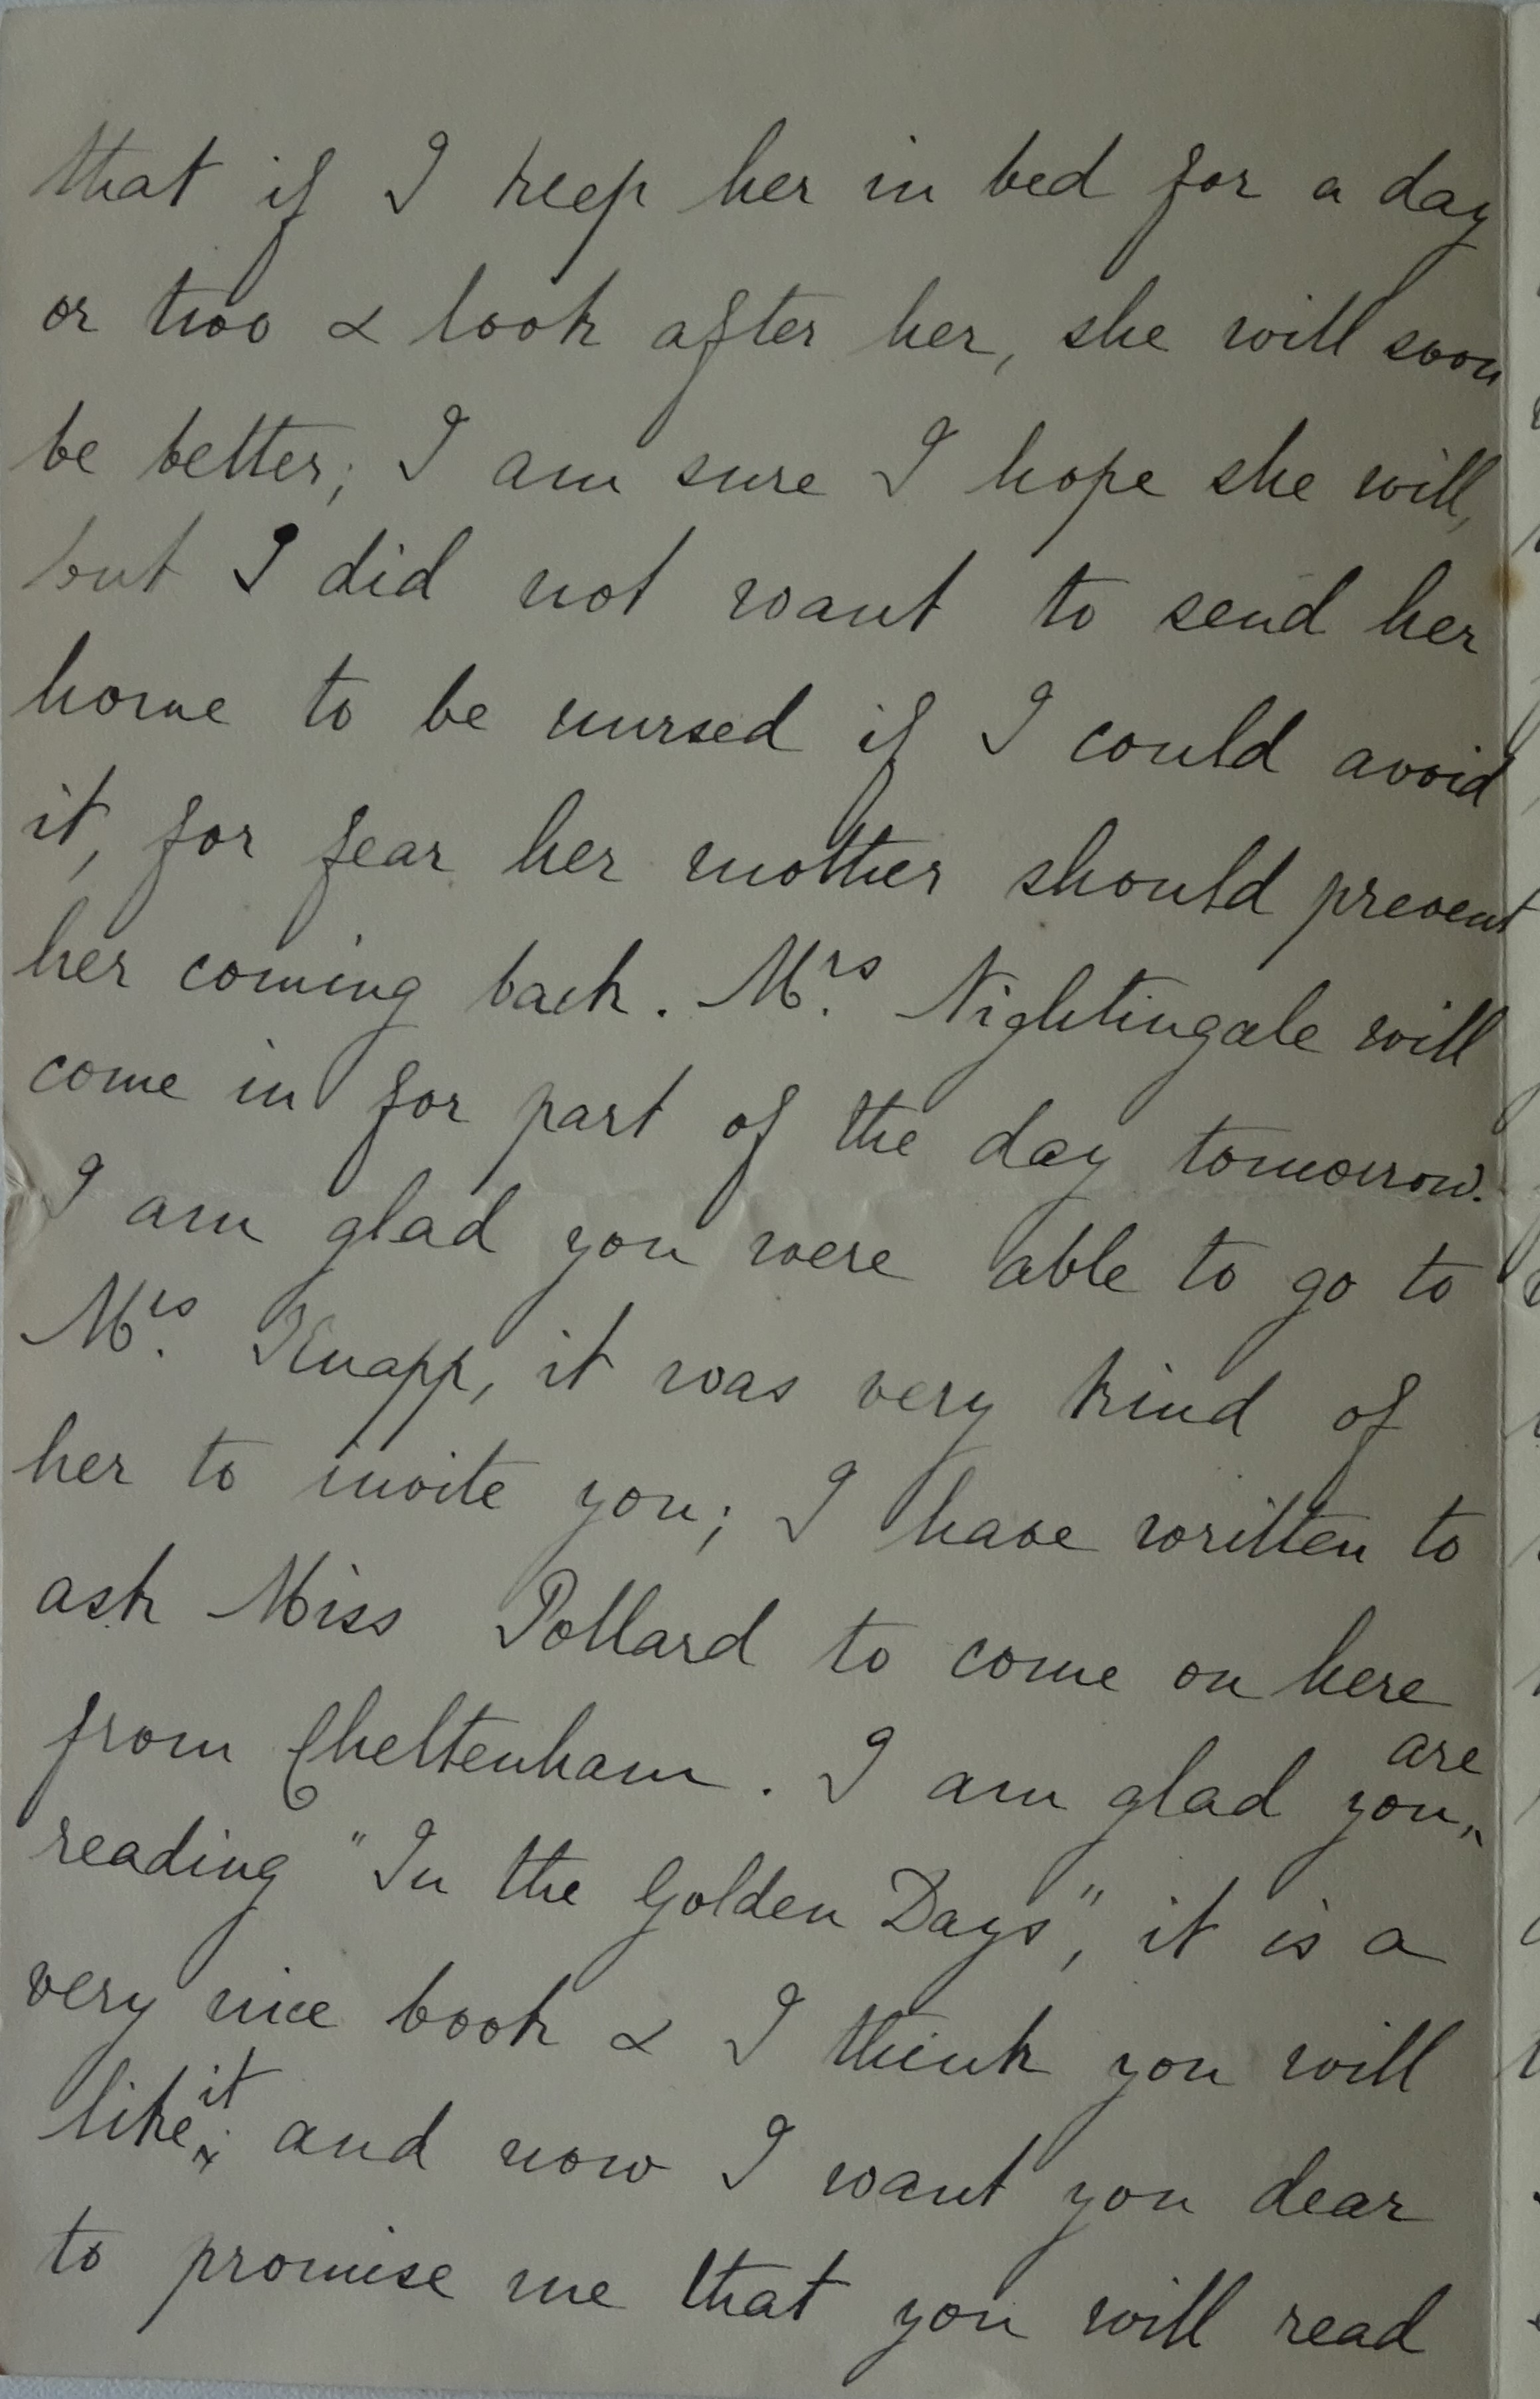 that if I keep her in bed for a day
or two & look after her, she will soon
be better; I am sure I hope she will,
but I did not want to send her
home to be nursed if I could avoid
it, for fear her mother should prevent
her coming back. Mrs. Nightingale will
come in for part of the day tomorrow.
I am glad you were able to go to
Mrs. Knapp, it was very kind of
her to invite you; I have written to
ask Miss Pollard to come on here
from Cheltenham. I am glad you are
reading "In the Golden Days", it is a
very nice book & I think you will
like it; and now I want you dear
to promise me that you will read